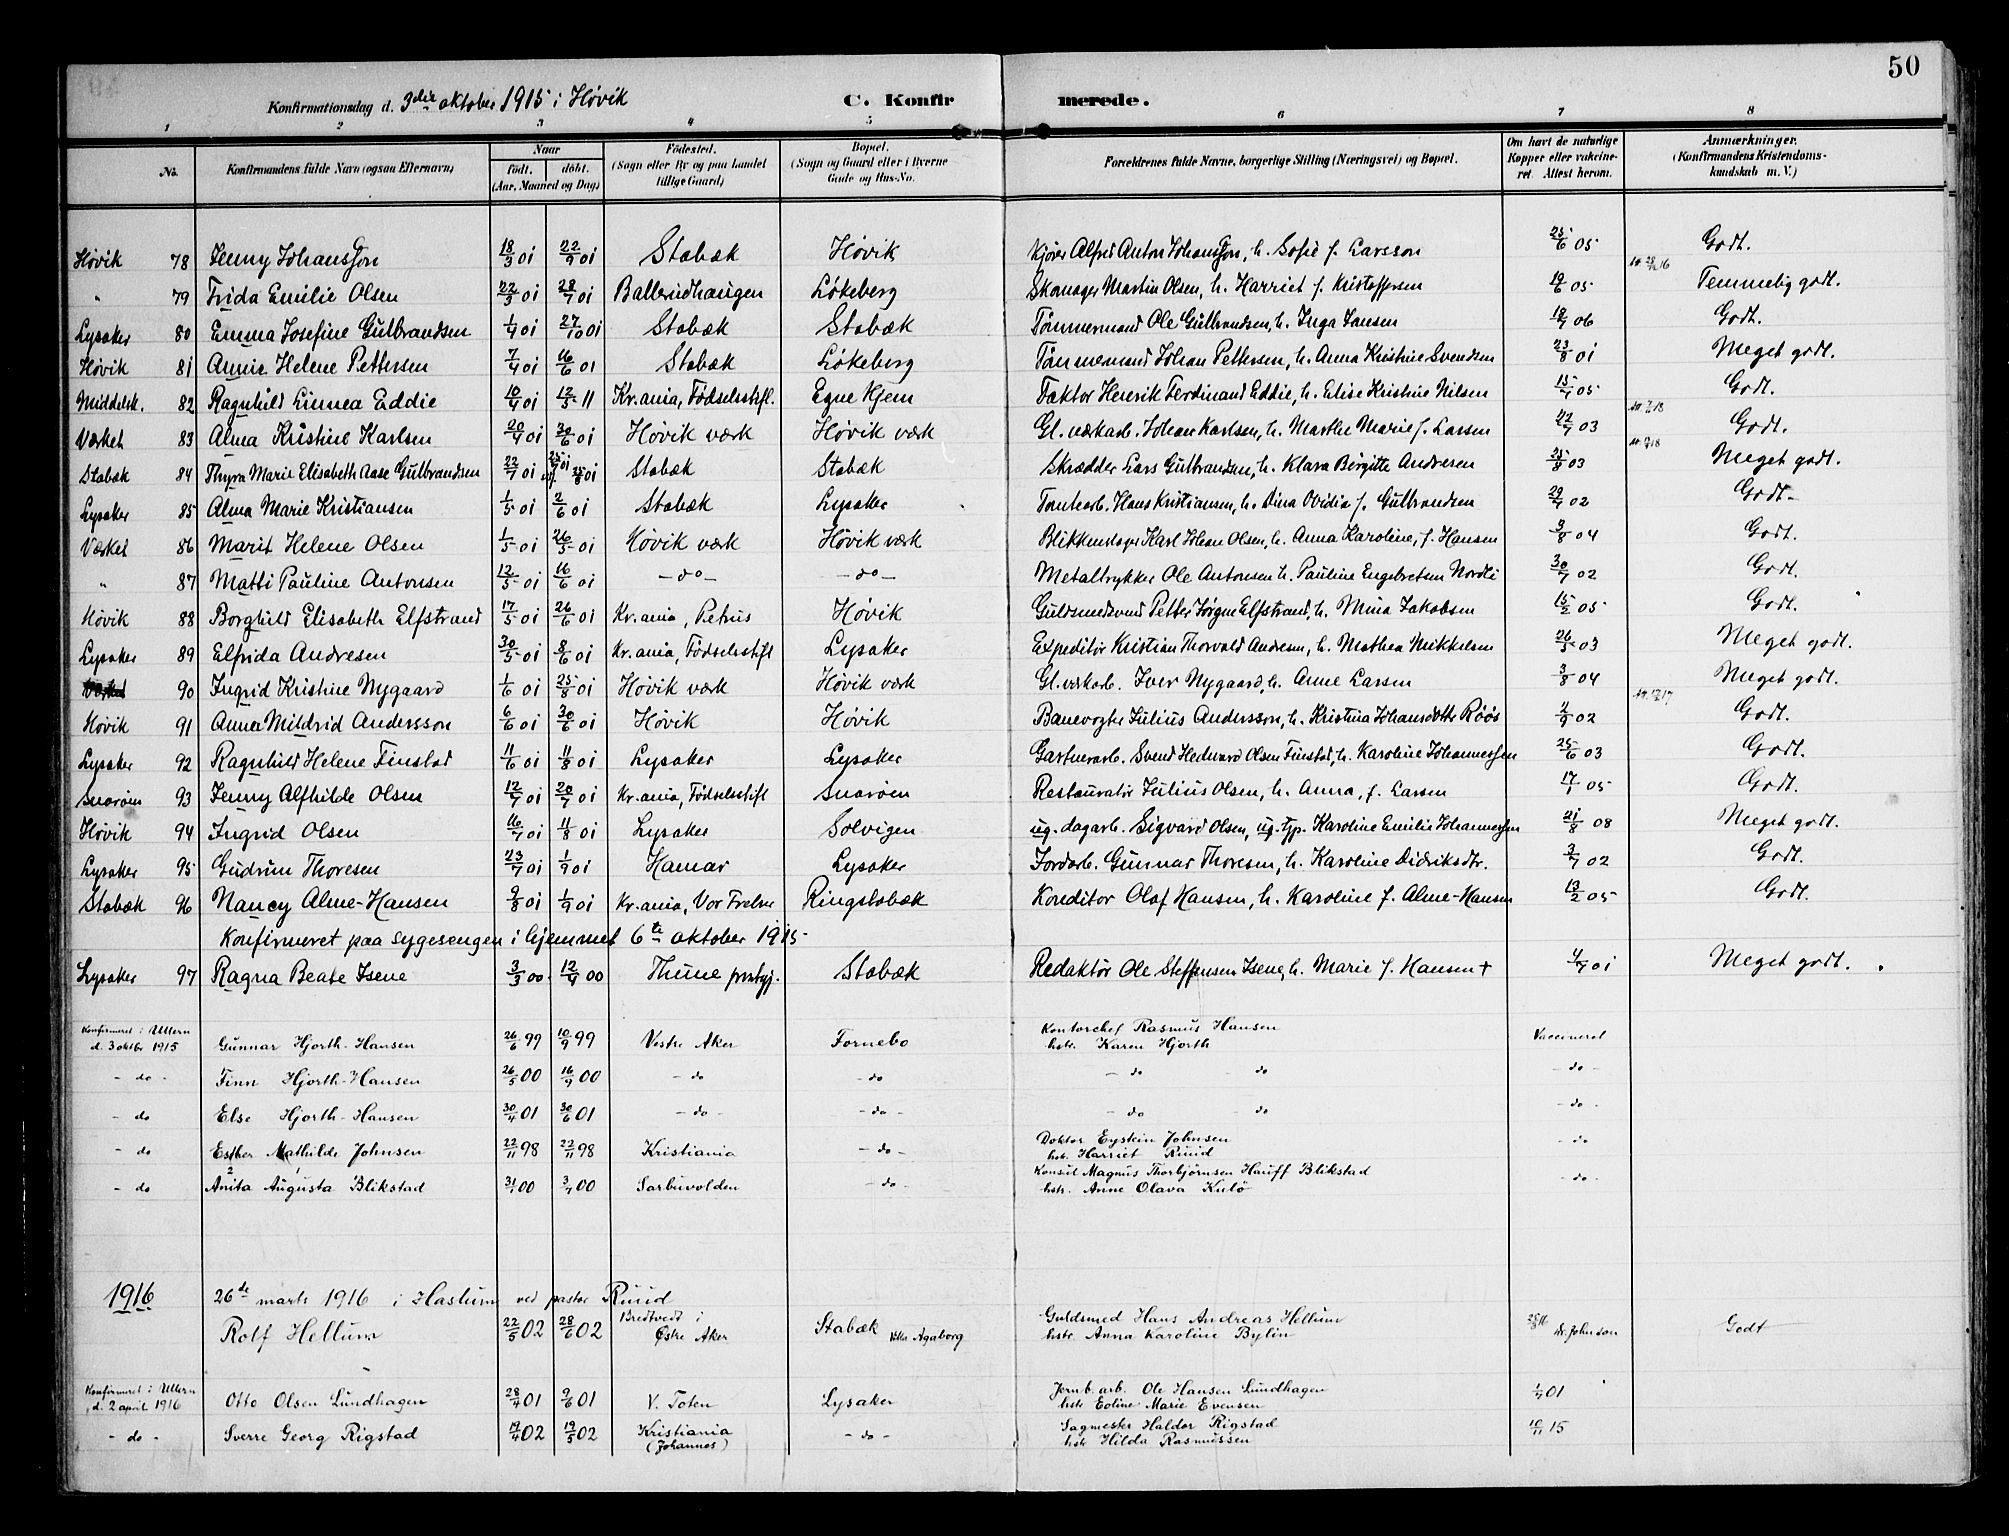 50
Konfirmationsdag d. 3die oktober 1915 i Høvik C. Konfir merede.
1 2 3 4 5 6 7 8
No. Konfirmandens fulde Navn (ogsaa Efternavn) Naar født. døbt. (Aar, Maaned og Dag) Fødested. (Sogn eller By og paa Landet tillige Gaard) Bopæl. (Sogn og Gaard eller i Byerne Gade og Hus-No. Forældrenes fulde Navne, borgerlige Stilling (Næringsvei) og Bopæl. Om havt de naturlige Kopper eller vaccineret. Attest herom. Anmærkninger. (Konfirmandens Kristendomskundskab m. V.)
Høvik 78 Jenny Johansson 18/3 01 22/9 01 Stabæk Høvik Kjører Alfred Anton Johansson, h. Sofie f. Larsson 25/6 05 Godt.
" 79 Frida Emilie Olsen 22/3 01 28/7 01 Ballerudhaugen Løkeberg Skomager Martin Olsen, h. Harriet f. Kristoffersen 19/6 05 Temmelig godt.
Lysaker 80 Emma Josefine Gulbrandsen 1/4 01 27/10 01 Stabæk Stabæk Tømmermand Ole Gulbrandsen, h. Inga Jansen 18/7 06 Godt.
Høvik 81 Annie Helene Pettersen 7/4 01 16/6 01 Stabæk Løkeberg Tømmermand Johan Pettersen, h. Anna Kristine Svendsen 23/8 01 Meget godt.
Middelsk. 82 Ragnhild Linnea Eddie 10/4 01 12/5 11 Kr.ania, Fødselsstift. Egne Hjem Faktor Henrik Ferdinand Eddie, h. Elise Kristine Nilsen 15/7 05 Godt.
Værket 83 Alma Kristine Karlsen 20/4 01 30/6 01 Høvik værk Høvik værk Gl. værkarb. Johan Karlsen, h. Marthe Marie f. Larsen 22/7 03 Godt.
Stabæk 84 Thyra Marie Elisabeth Aase Gulbrandsen 22/7 01 25/8 01 Stabæk Stabæk Skrædder Lars Gulbrandsen, h. Klara Birgitte Andresen 25/8 03 Meget godt.
Lysaker 85 Alma Marie Kristiansen 1/5 01 2/6 01 Stabæk Lysaker Tomtearb. Hans Kristiansen, h. Dina Ovidia f. Gulbrandsen 29/7 02 Godt.
Værket 86 Marit Helene Olsen 1/5 01 26/5 01 Høvik værk Høvik værk Blikkenslager Karl Johan Olsen, h. Anna Karoline, f. Hansen 3/8 04 Godt.
" 87 Matti Pauline Antonsen 12/5 01 16/6 01 - do - - do - Metaltrykker Ole Antonsen h. Pauline Engebretsen Nordli 30/7 02 Godt.
Høvik 88 Borghild Elisabeth Elfstrand 17/5 01 26/6 01 Kr.ania, Petrus Høvik Guldsmedsvend Petter Jørgen Elfstrand, h. Mina Jakobsen 15/2 05 Godt.
Lysaker 89 Elfrida Andresen 30/5 01 8/6 01 Kr.ania, Fødselsstift Lysaker Expeditør Kristian Thorvald Andresen, h. Mathea Mikkelsen 26/5 03 Meget godt.
Værket 90 Ingrid Kristine Nygaard 1/6 01 25/8 01 Høvik værk Høvik værk Gl. værkarb. Iver Nygaard, h. Anne Larsen 3/8 04 Meget godt.
Høvik 91 Anna Mildrid Andersson 6/6 01 30/6 01 Høvik Høvik Banevogter Julius Andersson, h. Kristina Johansdotter Röös 2/9 02 Godt.
Lysaker 92 Ragnhild Helene Finstad 11/6 01 11/8 01 Lysaker Lysaker Gartnerarb. Svend Hedvard Olsen Finstad, h. Karoline Johannessen 25/6 03 Godt.
Snarøen 93 Jenny Alfhilde Olsen 12/7 01 20/7 01 Kr.ania, Fødselsstift Snarøen Restauratør Julius Olsen, h. Anna, f. Larsen 17/1 05 Godt.
Høvik 94 Ingrid Olsen 16/7 01 11/8 01 Lysaker Solvigen ug. dagarb. Sigvard Olsen, ug. typ. Karoline Emilie Johannessen 21/8 08 Meget godt.
Lysaker 95 Gudrun Thoresen 23/7 01 1/9 01 Hamar Lysaker Jordarb. Gunnar Thoresen, h. Karoline Didriksdtr. 3/7 02 Godt.
Stabæk 96 Nancy Alme-Hansen 9/8 01 1/9 01 Kr.ania, Vor Frelser Ringstabæk Konditor Olaf Hansen, h. Karoline f. Alme-Hansen 13/2 05 Godt.
Konfirmeret paa sygesengen i hjemmet 6te oktober 1915
Lysaker 97 Ragna Beate Isene 3/3 00 12/4 00 Thune prestgj. Stabæk Redaktør Ole Steffensen Isene, h. Marie f. Hansen + 4/7 01 Meget godt.
Konfirmeret i Ullern d. 3 oktbr 1915 Gunnar Hjorth-Hansen 26/6 99 10/9 99 Vestre Aker Fornebo Kontorchef Rasmus Hansen Vaccineret
hstr. Karen Hjorth
- do - Finn Hjorth-Hansen 26/5 00 16/9 00 - do - do - do - do - do -
- do Else Hjorth-Hansen 30/4 01 30/6 01 - do - - do - - do - do - do -
- do Esther Mathilde Johnsen 22/11 98 22/11 98 Kristiania - do - Doktor Eystein Johnsen - do
hstr. Harriet Ruud
- do Anita Augusta Blikstad 31/1 00 3/7 00 Sarbuvolden - do - Konsul Magnus Thorbjørnsen Hauff Blikstad - do -
hstr. Anne Olava Kulö
1916 26de marts 1916 i Haslum ved pastor Ruud
Rolf Hellum 22/5 02 28/6 02 Bredtvedt i Østre Aker Stabæk Villa Agaborg Guldsmed Hans Andreas Hellum dr. Johnson Godt
hstr. Anna Karoline Bylin
Konfirmeret i Ullern d. 2 april 1916 Otto Olsen Lundhagen 28/4 01 9/6 01 V. Toten Lysaker Jernb. arb. Ole Hansen Lundhagen 1/7 01
hstr Eoline Marie Evensen
- do - Sverre Georg Rigstad 19/4 02 19/5 02 Kristiania (Johannes) - do - Sagmester Haldor Rigstad 10/11 15
hstr Hilda Rasmussen